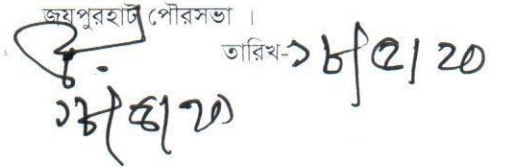 জয়পুরহাট পৌরসভা ।
তারিখ-১৮/৫/২০
১৮/৫/২০